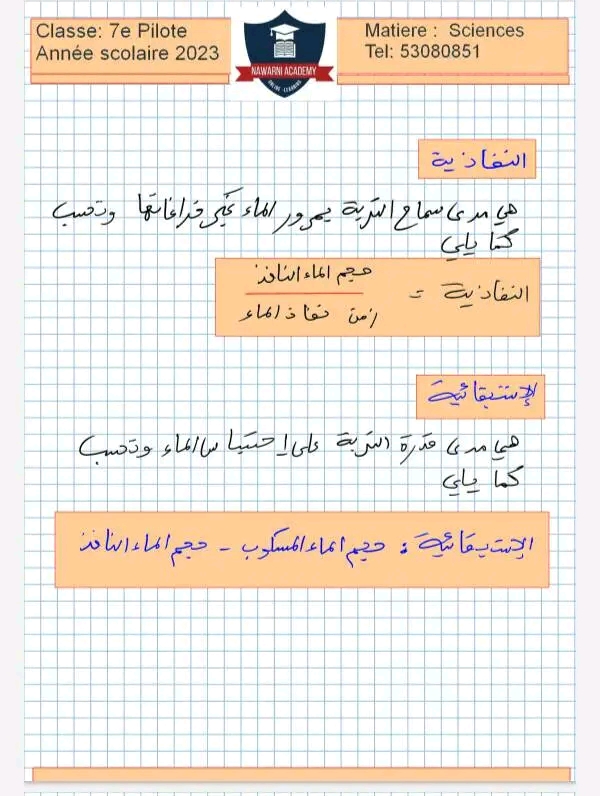 Classe: 7e Pilote
Année scolaire 2023
NAWARNI ACADEMY
ONLINE LEARNING
Matiere : Sciences
Tel: 53080851
النفاذية
هي مدى سماح التربة بمرور الماء عبر فراغاتها وتحسب
كما يلي
النفاذية = حجم الماء النافذ
زمن نفاذ الماء
الإستبقائية
هي مدى قدرة التربة على إحتباس الماء وتحسب
كما يلي
الإستبقائية : حجم الماء المسكوب - حجم الماء النافذ